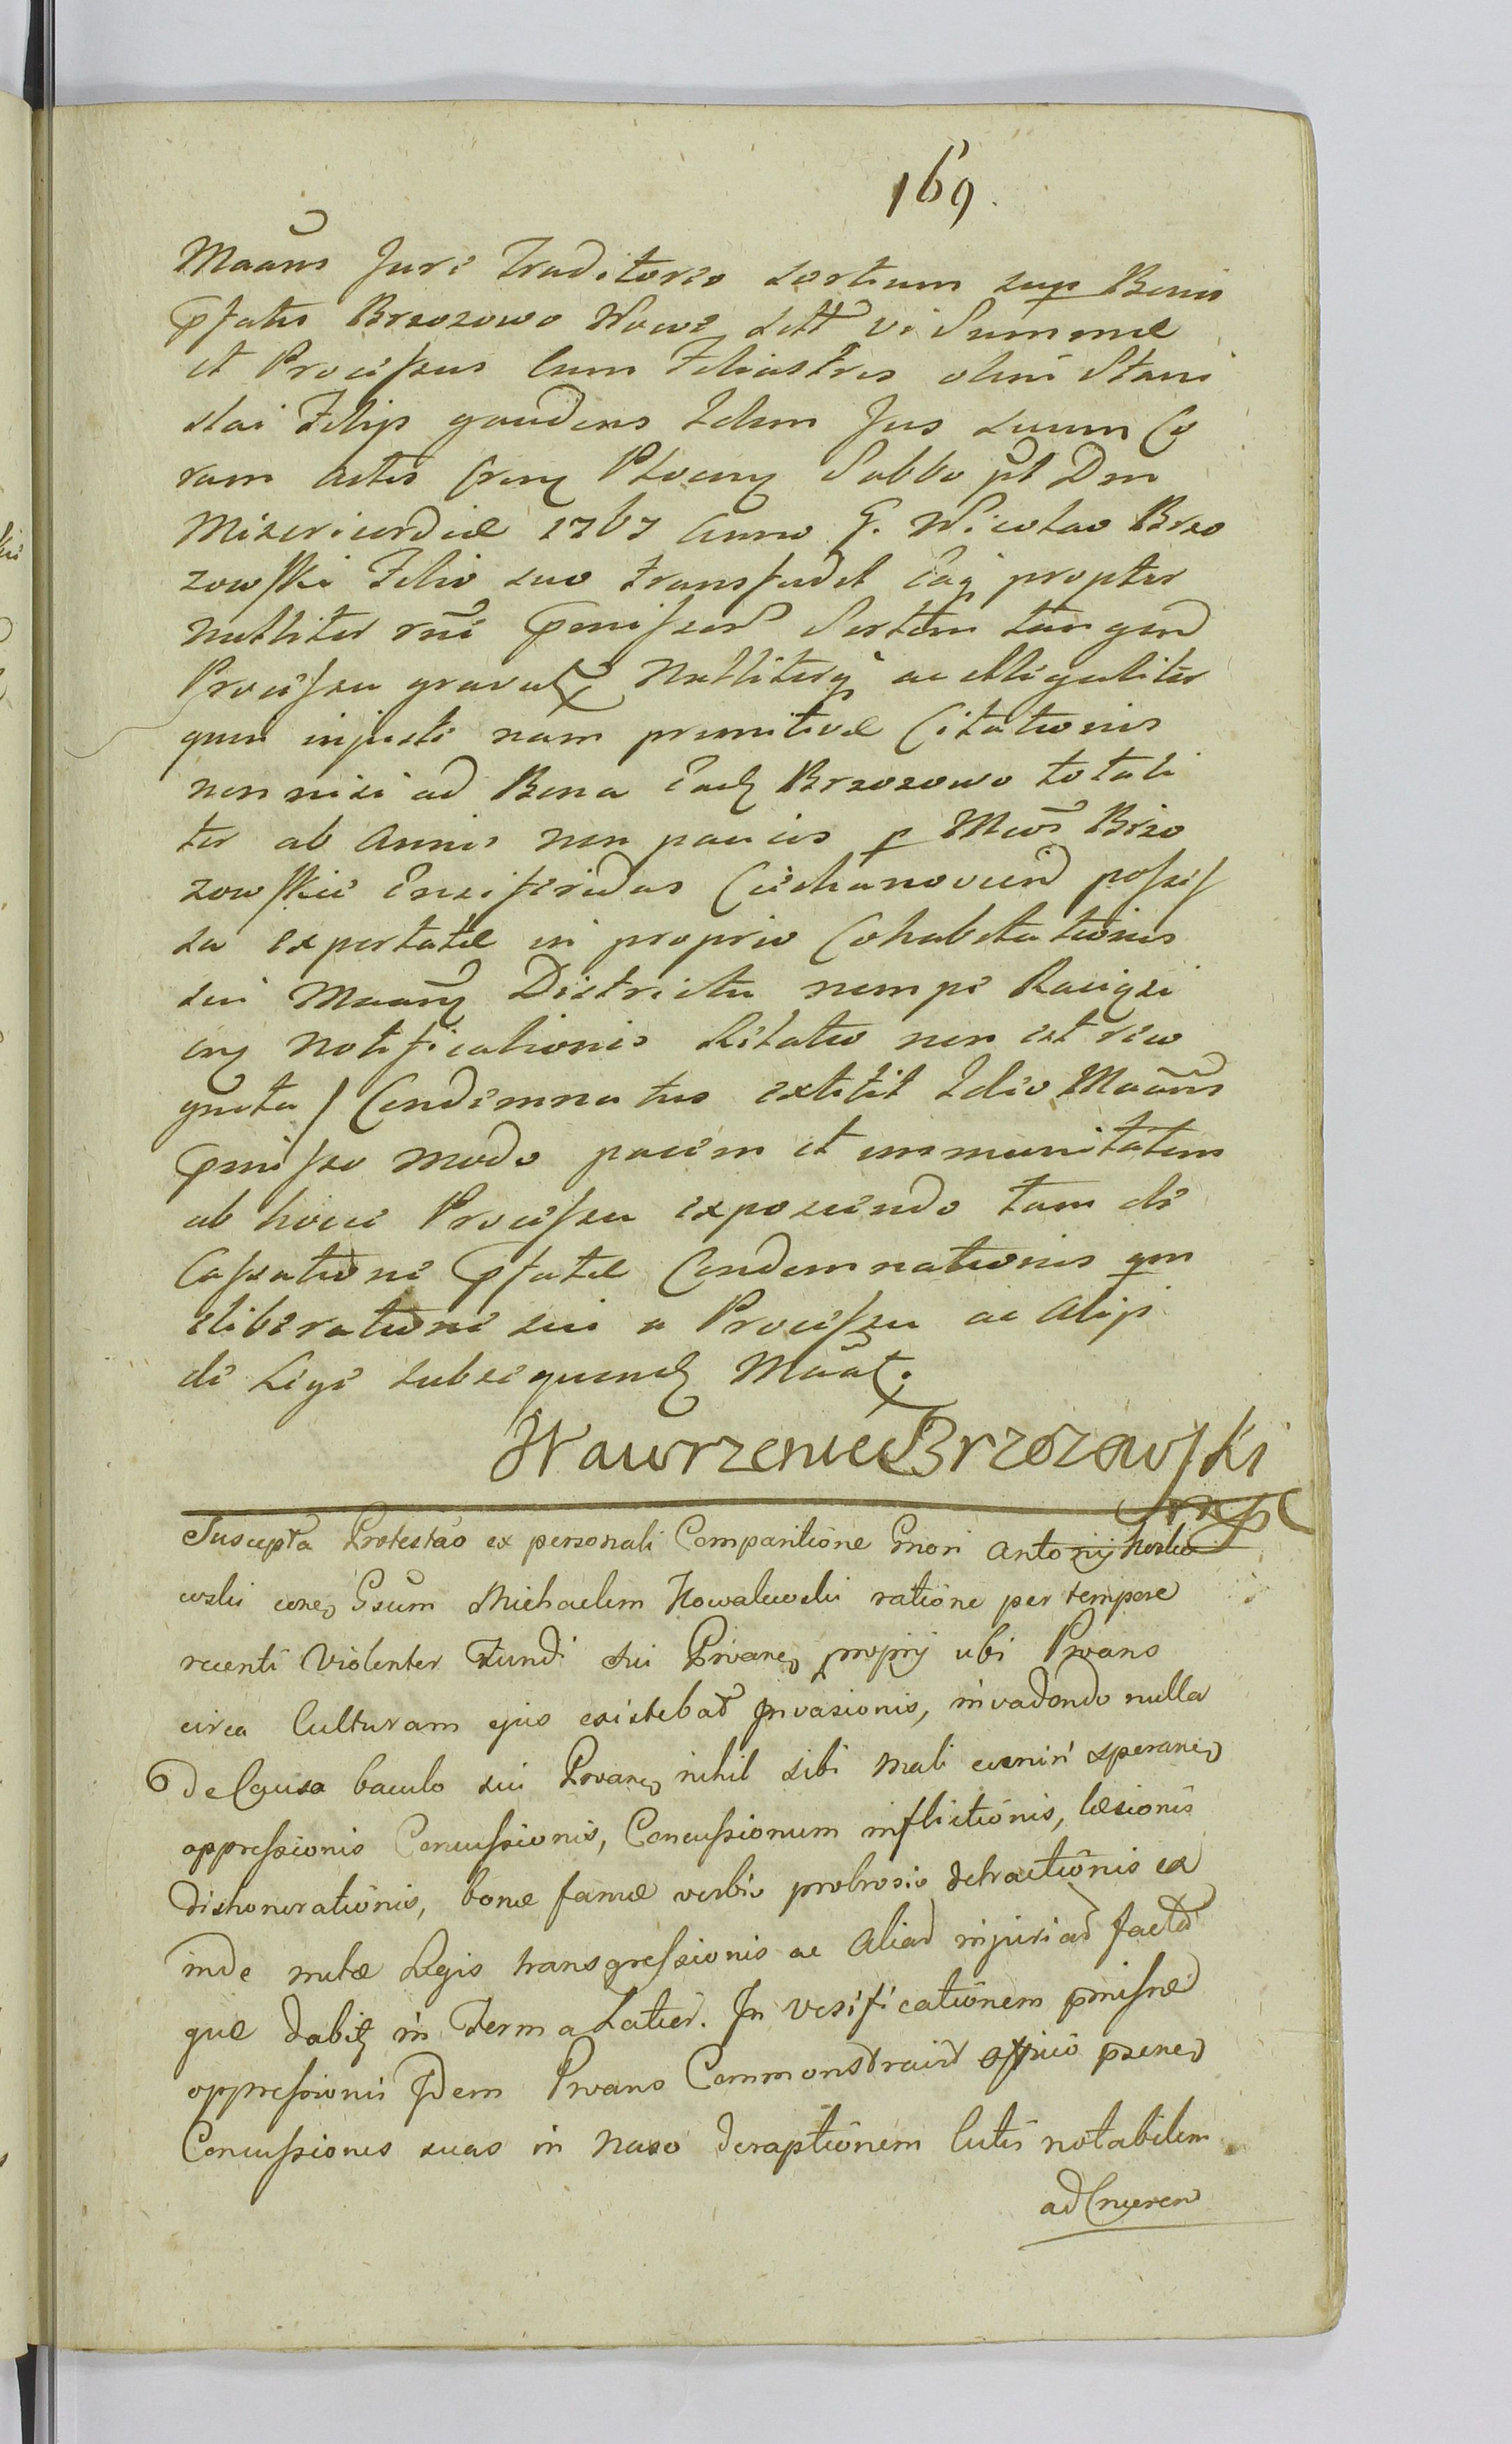 169.
Maans Jure Traditorio sortium sup Bonis
pfatis Brzozowo Nowe Litt vi Summae
et Processus Cum Filiastris olim Stani
slai Filijs gaudens Idem Jus suum Co
ram Actis Plocen Sabbo pt Dm
Misericordiae 1767 Anno G. Nicolao Brzo
zowski Filio suo transfudit Eaq propter
Nulliter rne pmissor Sortem tangen
Processu gravat Nulliterq ac Illegaliter
quin injuste nam primitivae Citationis
non nisi ad Bona Ead Brzozowo totali
ter ab Annis non paucis p Mcos Brzo
zowskie Ensiferidas Ciechanovien posses
sa exportatae in proprio Cohabitationis
sui Maan Districtu nempe Raciąże
en Notificationis Citatio non est reco
gnita / Condemnatus extitit Ideo Maans
pmisso modo pacem et immunitatem
ab hocce Processu exposcendo tam de
Cassatione pfatae Condemnationis qm
eliberatione sui a Processu ac Alijs
de Lege subsequend Maat.
Wawrzeniec Brzozowski
mp
Suscepta Protestao ex personali Comparitione Gnosi Antonij
wski cone Gsum Michaelem Kowalewski ratione per tempore
recenti Violenter Fundi sui Prvane proprij ubi Prvans
circa Culturam ejus existebat Invasionis, invadendo nulla
De Causa baculo sui Prvane nihil sibi Mali evenire sperane
oppressionis Concussionis, Concussionum inflictionis, laesionis
dishonorationis, bonae famae verbis probrosis detractionis ex
inde mutae Legis transgressionis ac Aliar injuriar factar
quae dabit in Termo Latier. In Verificationem pmissae
oppressionis Idem Prvans Commonstravit officio psene
Concussiones suas in Naso deraptionem Cutis notabilem
ad